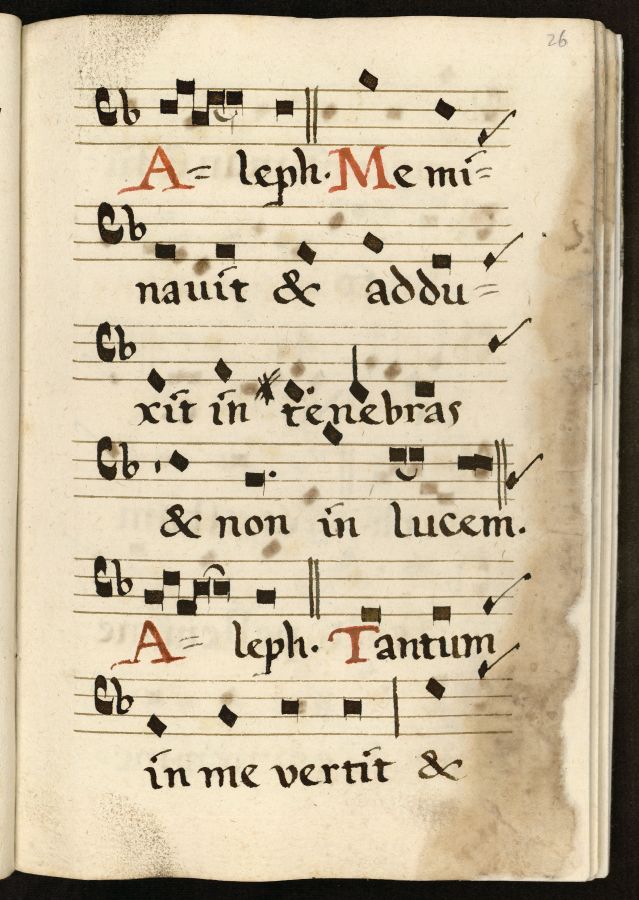 26
A= leph. Me mi=
navit & addu=
xit in tenebras
& non in lucem.
A= leph. Tantum
in me vertit &